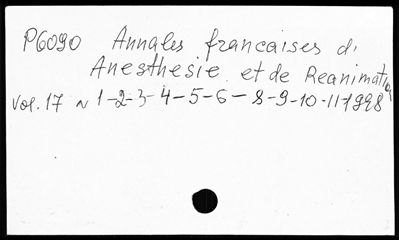 P6090 Annales francaises d,
Anesthesie et de Reanimation
Vol. 17 N 1-2-3-4-5-6-8-9-10-11-1998